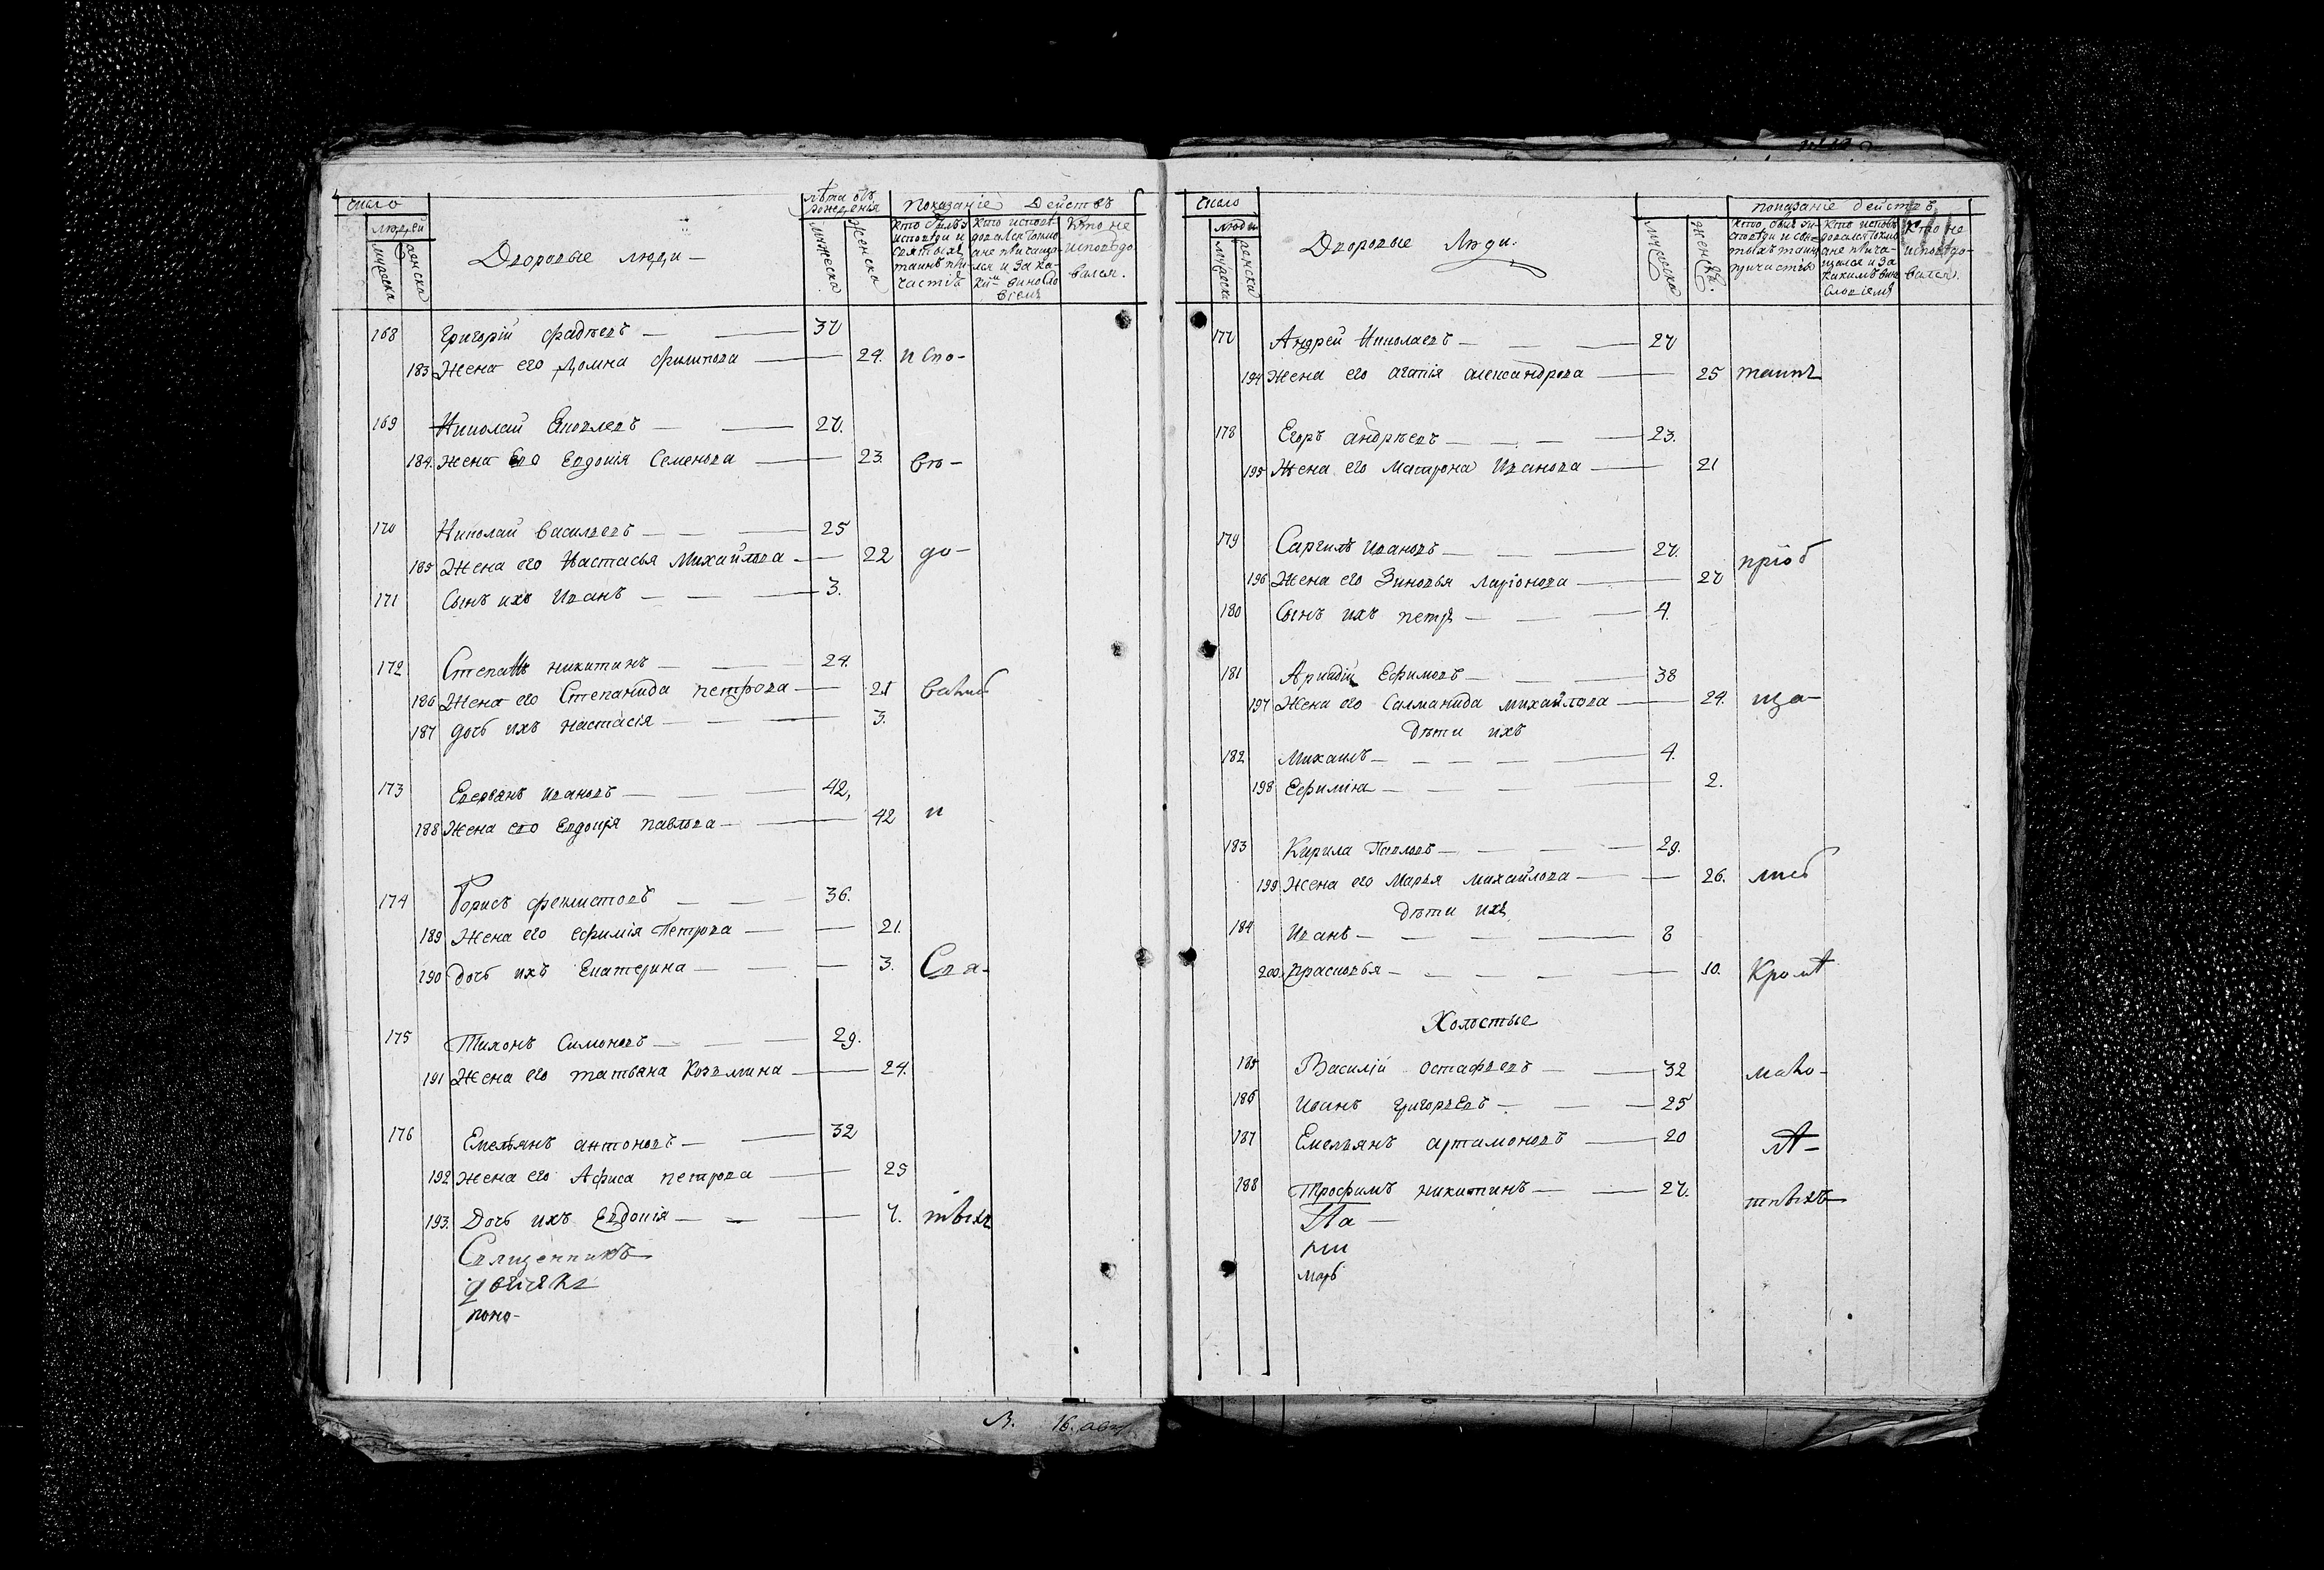 число
людей
мужеска
женска
Дворовые люди —
лѣта отъ рожденія
мужеска
женска
Показаніе Действъ
кто былъ у исповѣди и святыхъ таинъ причастія
кто исповѣдовался токмо а не причащался и за каким винословіемъ
Кто не исповѣдовался.
168 Григорій Фадѣевъ — — 37
183 Жена его Домна Филипова — 24. испо-
169 Николай Яковлевъ — — 27.
184. Жена Его Евдокія Семенова — 23. вѣ-
170 Николай Васильевъ — — — 25
185 Жена его Настасья Михайлова — 22 до-
171 Сынъ ихъ Иванъ — — — 3.
172 Степанъ Никитинъ — — — 24.
186 Жена его Степанида Петрова — 21 вались
187 дочь ихъ Настасія — — — 3.
173 Иванов — — — 42,
188 Жена его Евдокія Павлова — — 42 и
174 Борисъ Феклистовъ — — — 36.
189 Жена его Ефимія Петрова — — 21.
190 Дочь ихъ Екатерина — — — 3. Свя-
175 Тихонъ Симоновъ — — — 29.
191 Жена его Татьяна Козьмина — 24.
176 Емельянъ Антоновъ — — 32
192 Жена его Афиса Петрова — 25
193. Дочь ихъ Евдокія — — — 7. тыхъ
Священникъ
поно-
16.
число
людей
мужеска
женска
Дворовые Люди.
мужеска
женскъ.
показаніе действъ
кто былъ у исповѣди и святыхъ таинъ причастія
Кто исповѣдовался токмо а не причащался и за какимъ винословіемъ
Кто не исповѣдовался.
177 Андрей Николаевъ — — — 27
194 Жена его Агапія Александрова — 25 таинъ
178 Егоръ Андрѣевъ — — — 23.
195 Жена его Матрона Иванова — 21
179 Ивановъ — — — 27.
196 Жена его Зиновья Ларіонова — 27 пріоб
180 Сынъ ихъ Петръ — — — 4.
181 Ефимовъ — — — 38
197 Жена его Саломанида Михайлова — 24. ща-
Дѣти ихъ
182 Михаилъ — — — — 4.
198 Ефимiя — — — 2.
183 Кирила Павловъ — — — 29.
199 Жена его Марья Михайлова — — 26. лись
Дѣти ихъ
184 Иванъ — — — — 8
200 Прасковья — — — — 10. Кромѣ
Холостые
185 Василій Остафьевъ — — 32 мало-
186 Иванъ Григорьевъ — — — 25
187 Емельянъ Артамоновъ — 20 лѣ-
188 Трофимъ Никитинъ — — 27. тныхъ
Па —
ки
марь